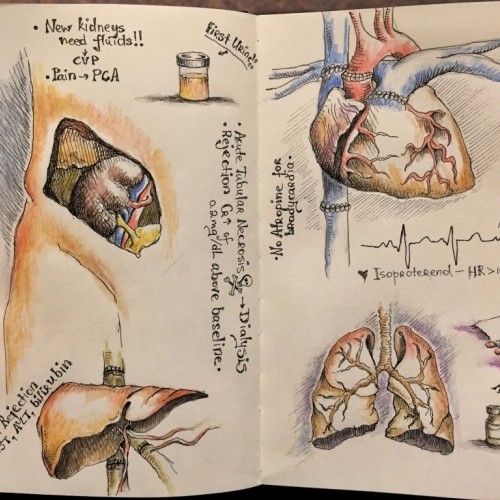 • New kidneys
need fluids!!
↓
CVP
• Pain → PCA
First Urine!!
• Acute Tubular Necrosis → Dialysis
• Rejection Cr↑ of
0.2 mg/dL above baseline.
Rejection
ALT, bilirubin
• No Atropine for
bradycardia.
♥ Isoproterenol – HR >